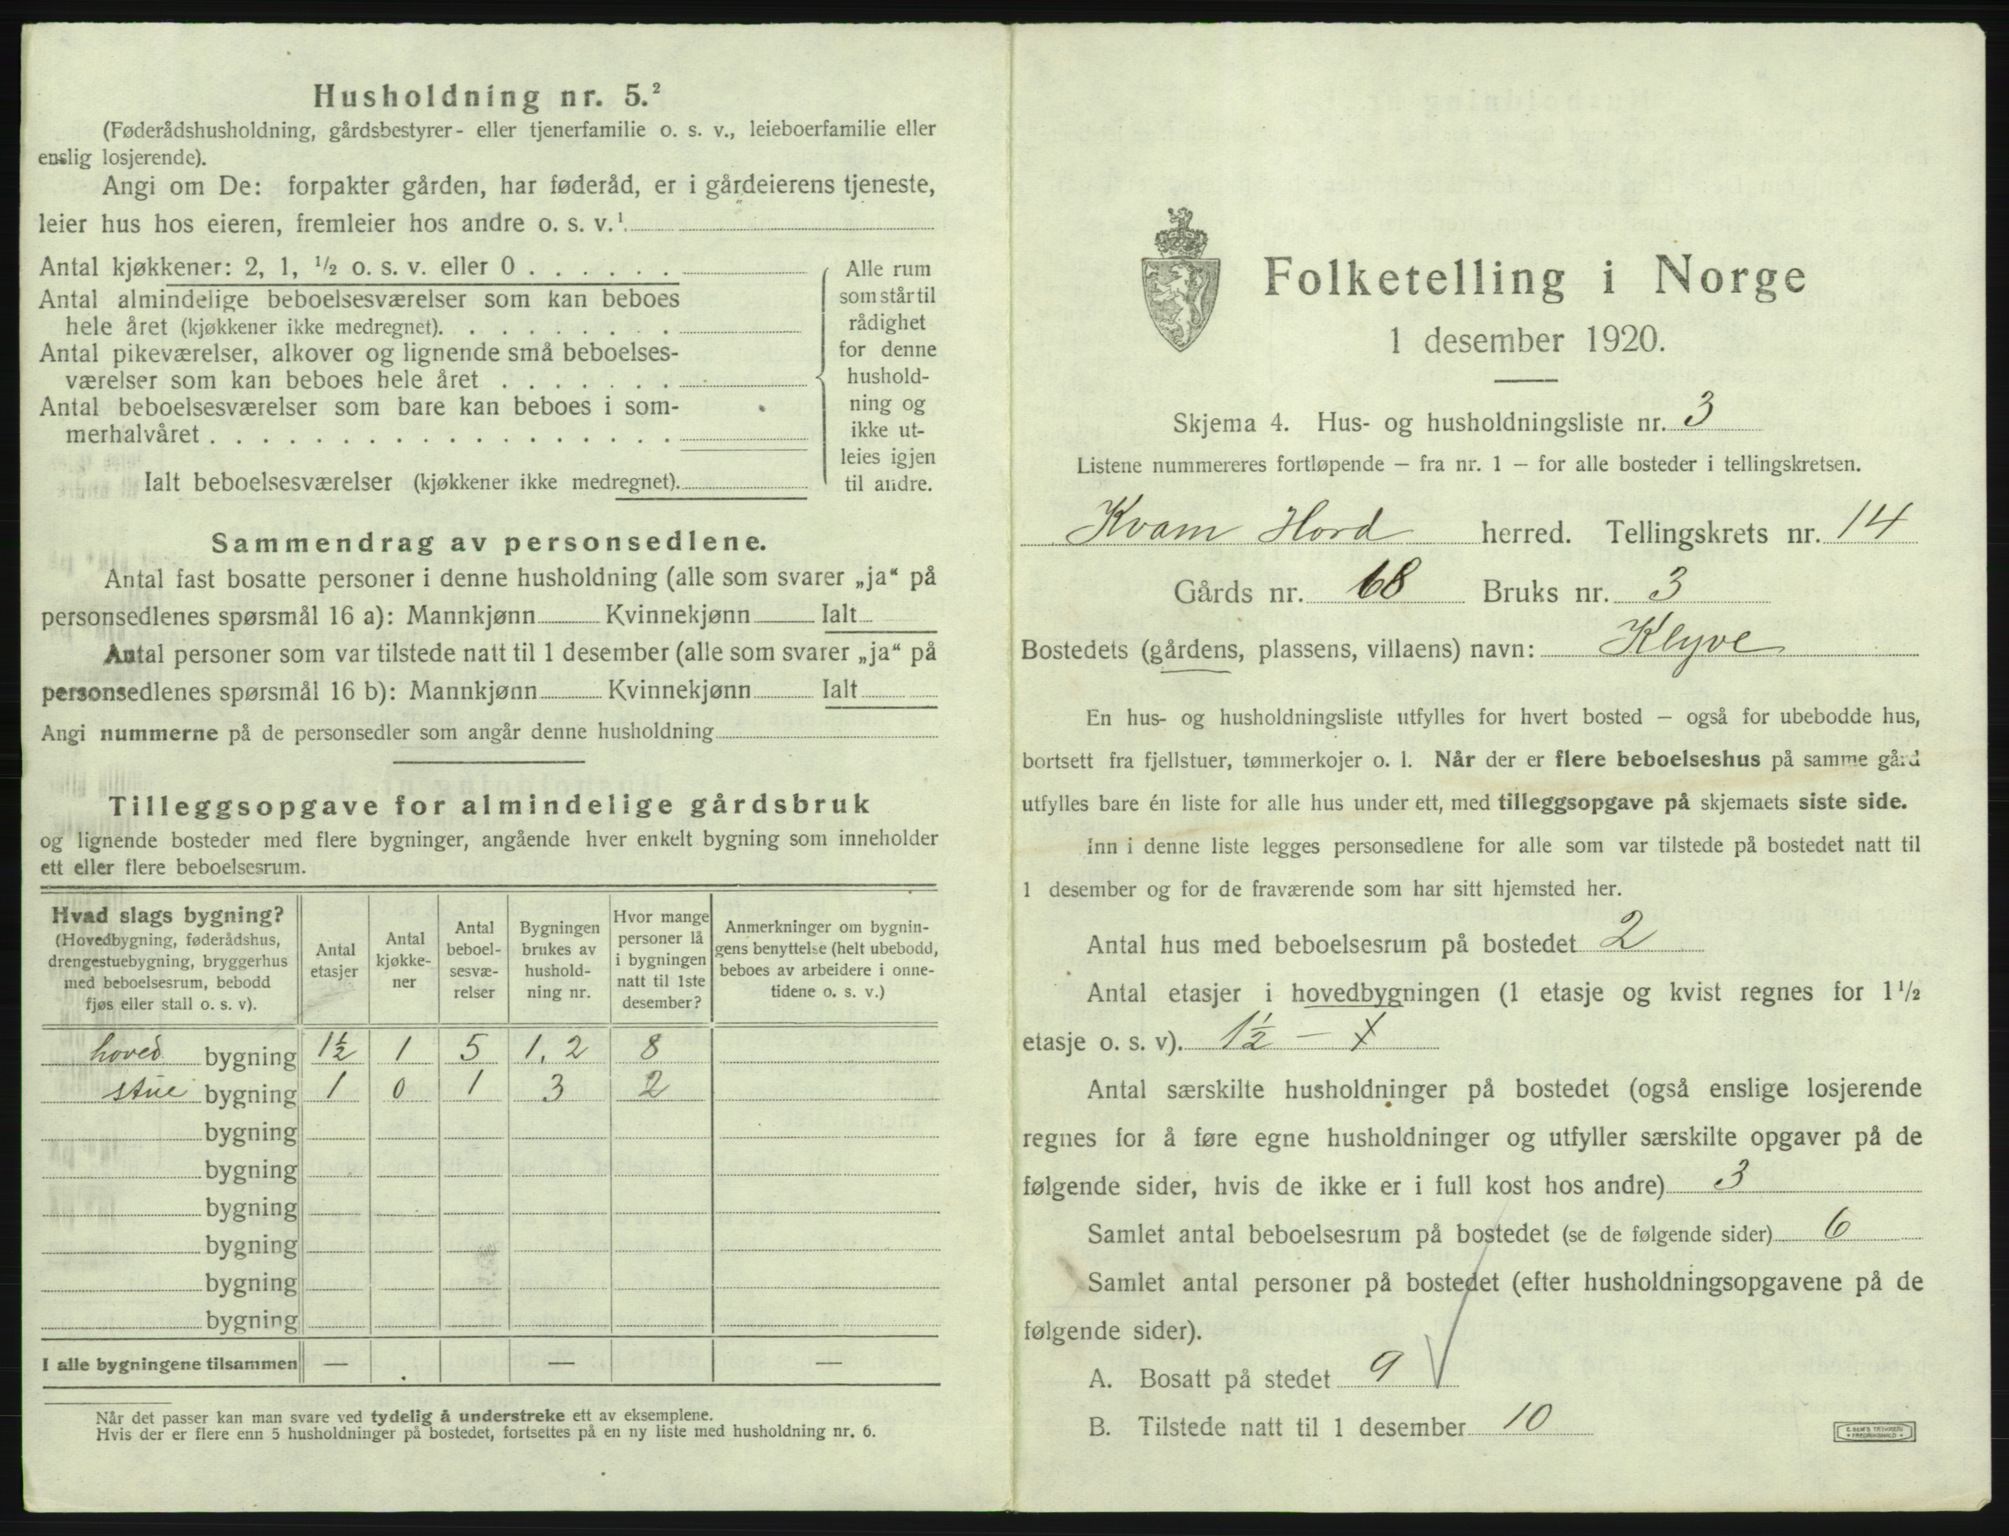 Husholdning nr. 5.²
(Føderådshusholdning, gårdsbestyrer- eller tjenerfamilie o. s. v., leieboerfamilie eller
enslig losjerende).
Angi om De: forpakter gården, har føderåd, er i gårdeierens tjeneste,
leier hus hos eieren, fremleier hos andre o. s. v.¹
Antal kjøkkener: 2, 1, ½ o. s. v. eller 0 . . . . . .
Antal almindelige beboelsesværelser som kan beboes
hele året (kjøkkener ikke medregnet). . . . . . . . .
Antal pikeværelser, alkover og lignende små beboelses-
værelser som kan beboes hele året . . . . . . .
Antal beboelsesværelser som bare kan beboes i som-
merhalvåret . . . . . . . . . . . . . . . . . .
Ialt beboelsesværelser (kjøkkener ikke medregnet).
Alle rum
som står til
rådighet
for denne
hushold-
ning og
ikke ut-
leies igjen
til andre.
Sammendrag av personsedlene.
Antal fast bosatte personer i denne husholdning (alle som svarer „ja“ på
personsedlenes spørsmål 16 a): Mannkjønn Kvinnekjønn Ialt
Antal personer som var tilstede natt til 1 desember (alle som svarer „ja“ på
personsedlenes spørsmål 16 b): Mannkjønn Kvinnekjønn Ialt
Angi nummerne på de personsedler som angår denne husholdning
Tilleggsopgave for almindelige gårdsbruk
og lignende bosteder med flere bygninger, angående hver enkelt bygning som inneholder
ett eller flere beboelsesrum.
Hvad slags bygning?
(Hovedbygning, føderådshus,
drengestuebygning, bryggerhus
med beboelsesrum, bebodd
fjøs eller stall o. s. v).
Antal
etasjer
Antal
kjøkke-
ner
Antal
beboel-
sesvæ-
relser
Bygningen
brukes av
hushold-
ning nr.
Hvor mange
personer lå
i bygningen
natt til 1ste
desember?
Anmerkninger om bygnin-
gens benyttelse (helt ubebodd,
beboes av arbeidere i onne-
tidene o. s. v.)
hoved bygning 1½ 1 5 1, 2 8
stue bygning 1 0 1 3 2
bygning
bygning
bygning
bygning
bygning
bygning
I alle bygningene tilsammen — — —
Når det passer kan man svare ved tydelig å understreke ett av eksemplene.
Hvis der er flere enn 5 husholdninger på bostedet, fortsettes på en ny liste med husholdning nr. 6.
Folketelling i Norge
1 desember 1920.
Skjema 4. Hus- og husholdningsliste nr. 3
Listene nummereres fortløpende — fra nr. 1 — for alle bosteder i tellingskretsen.
Kvam Hord herred. Tellingskrets nr. 14
Gårds nr. 68 Bruks nr. 3
Bostedets (gårdens, plassens, villaens) navn: Klyve
En hus- og husholdningsliste utfylles for hvert bosted — også for ubebodde hus,
bortsett fra fjellstuer, tømmerkojer o. l. Når der er flere beboelseshus på samme gård
utfylles bare én liste for alle hus under ett, med tilleggsopgave på skjemaets siste side.
Inn i denne liste legges personsedlene for alle som var tilstede på bostedet natt til
1 desember og for de fraværende som har sitt hjemsted her.
Antal hus med beboelsesrum på bostedet 2
Antal etasjer i hovedbygningen (1 etasje og kvist regnes for 1½
etasje o. s. v). 1½ —
Antal særskilte husholdninger på bostedet (også enslige losjerende
regnes for å føre egne husholdninger og utfyller særskilte opgaver på de
følgende sider, hvis de ikke er i full kost hos andre) 3
Samlet antal beboelsesrum på bostedet (se de følgende sider) 6
Samlet antal personer på bostedet (efter husholdningsopgavene på de
følgende sider).
A. Bosatt på stedet 9
B. Tilstede natt til 1 desember 10